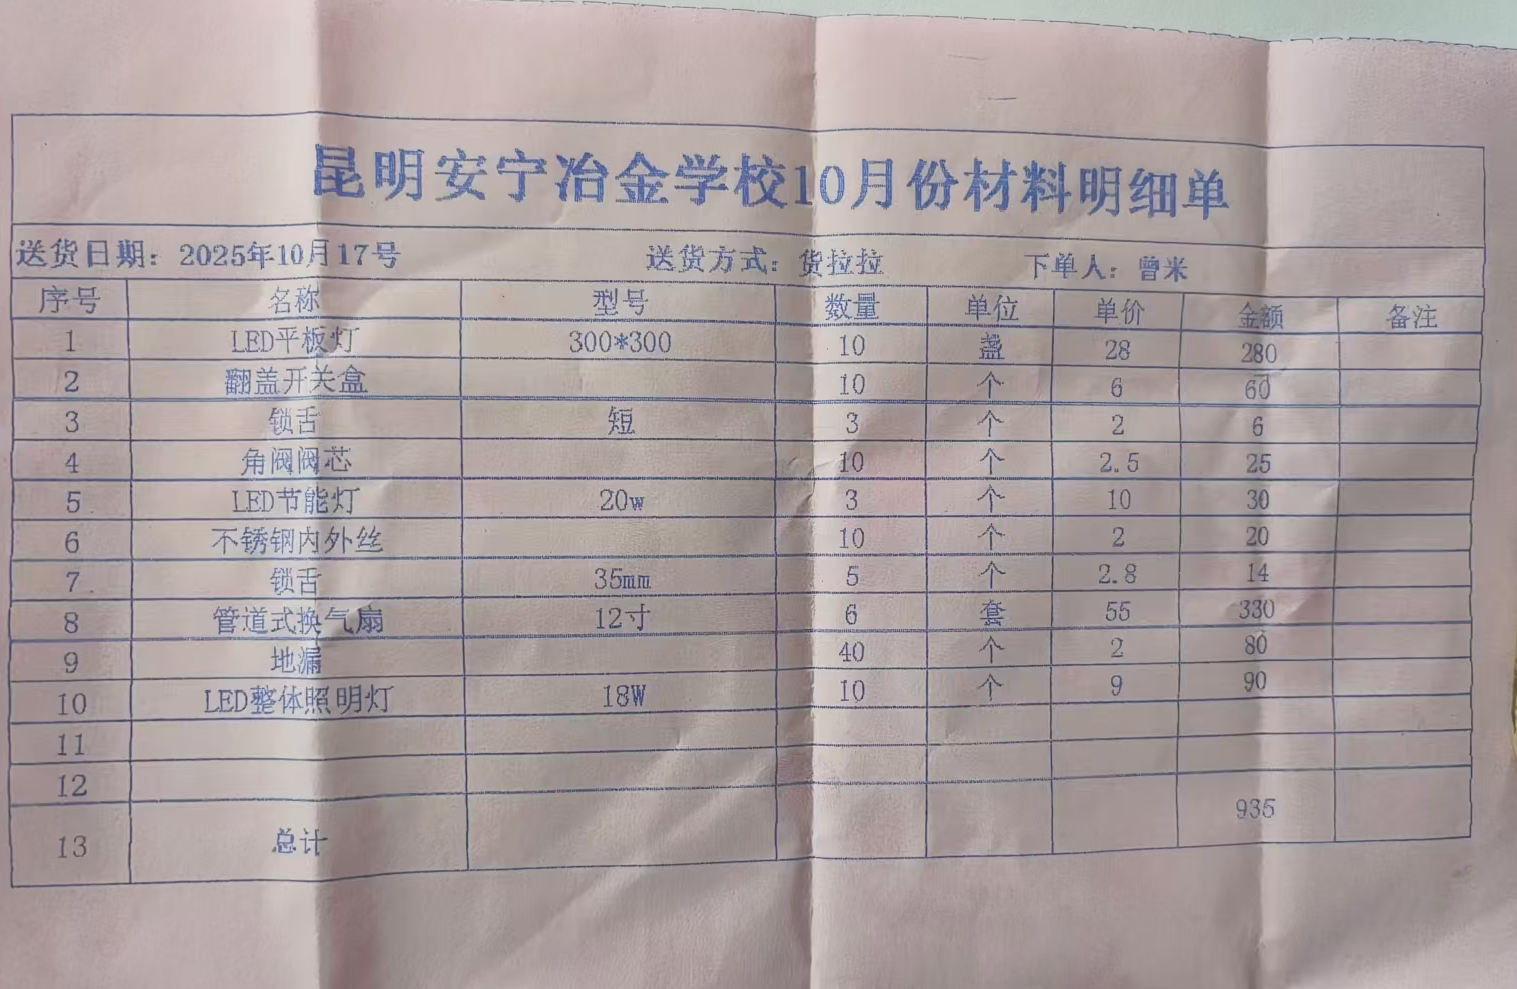 昆明安宁冶金学校10月份材料明细单
送货日期：2025年10月17号 送货方式：货拉拉 下单人：曾米
序号 名称 型号 数量 单位 单价 金额 备注
1 LED平板灯 300*300 10 盏 28 280
2 翻盖开关盒 10 个 6 60
3 锁舌 短 3 个 2 6
4 角阀阀芯 10 个 2.5 25
5 LED节能灯 20w 3 个 10 30
6 不锈钢内外丝 10 个 2 20
7 锁舌 35mm 5 个 2.8 14
8 管道式换气扇 12寸 6 套 55 330
9 地漏 40 个 2 80
10 LED整体照明灯 18W 10 个 9 90
11
12
13 总计 935